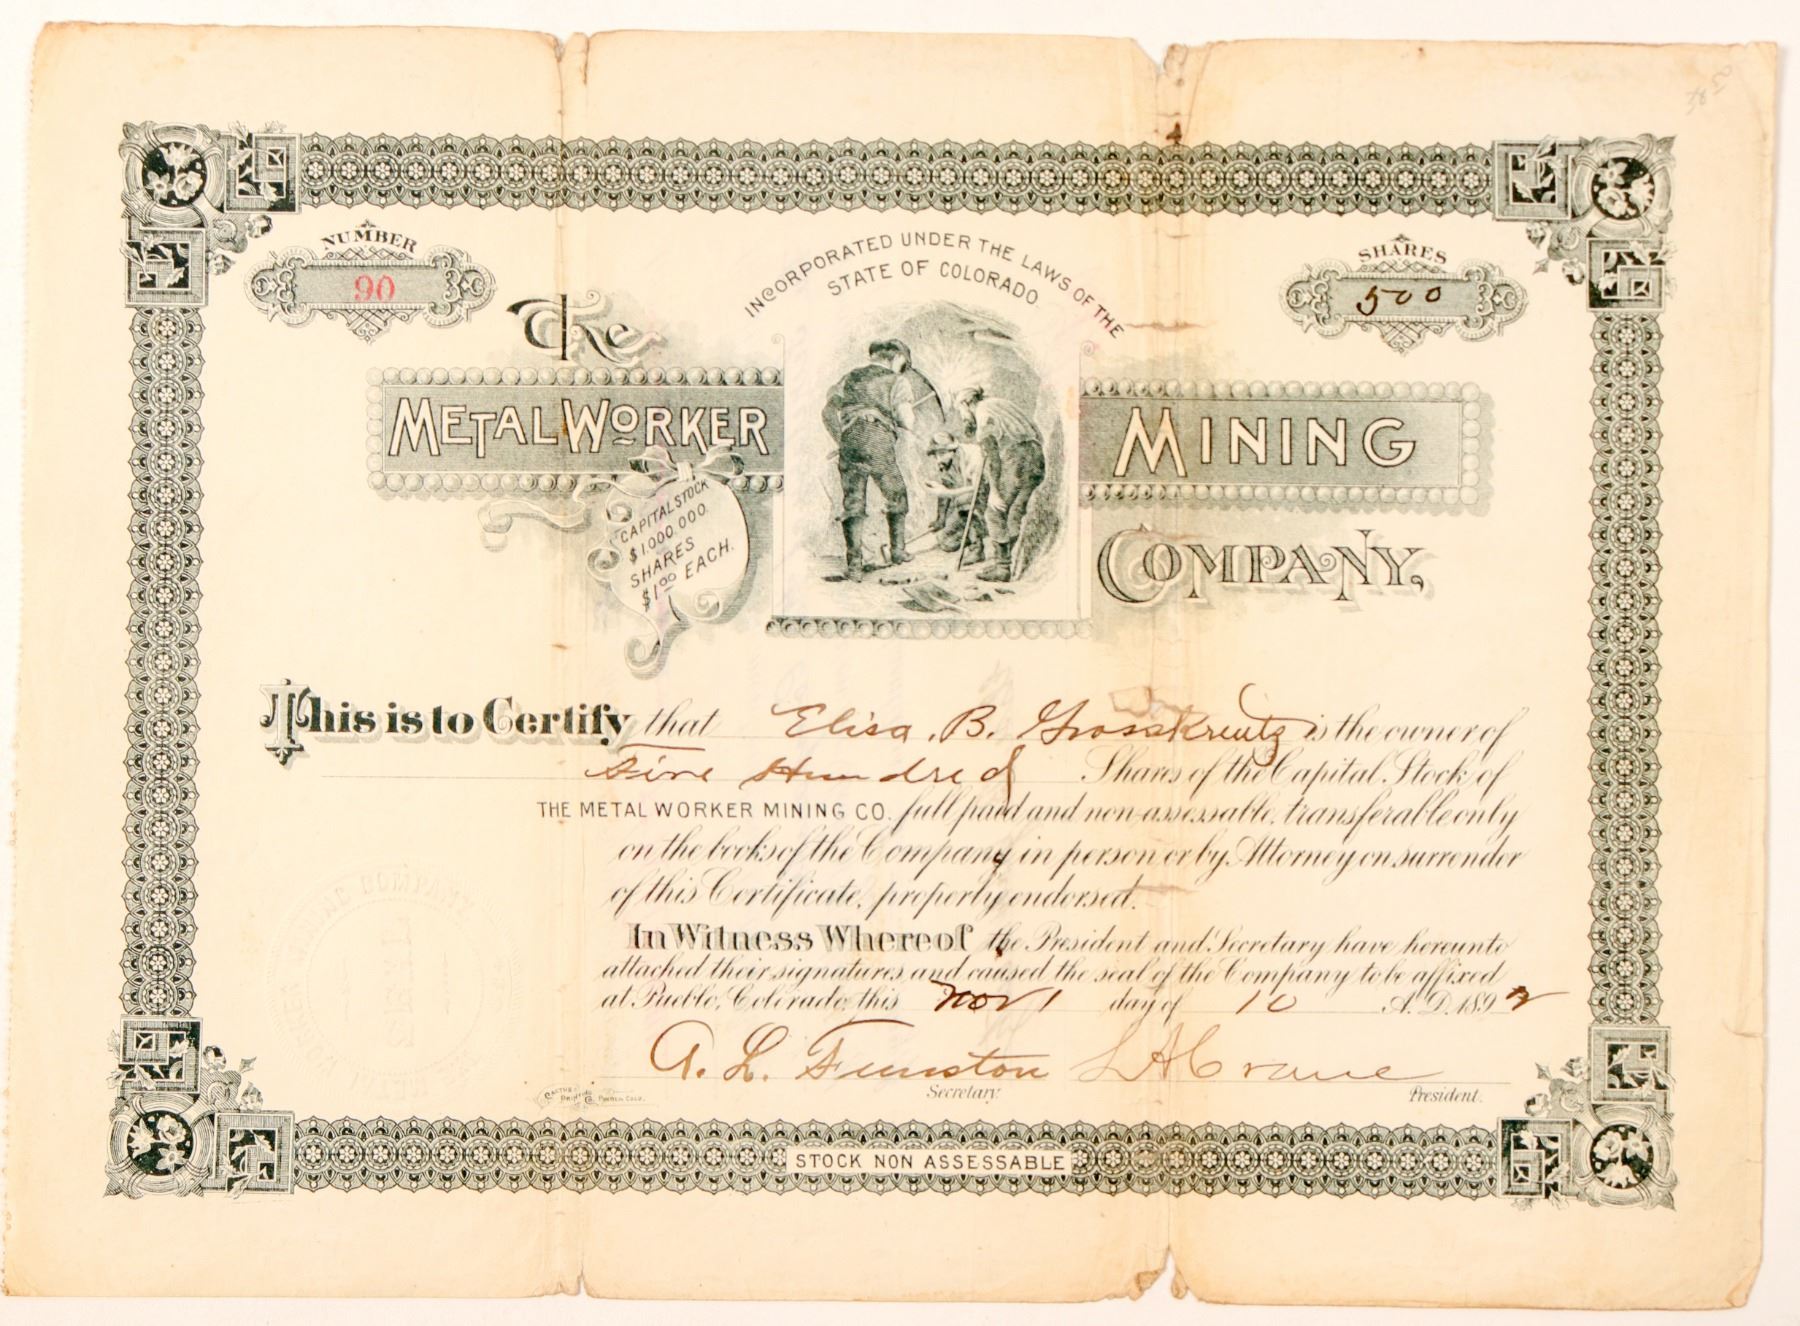 NUMBER
90
INCORPORATED UNDER THE LAWS OF THE
STATE OF COLORADO
SHARES
500
The
METAL WORKER MINING
COMPANY,
CAPITAL STOCK
$1.000.000.
SHARES
$1.00 EACH.
This is to Certify that Elisa. B. Grosskreutz is the owner of
Five Hundred Shares of the Capital Stock of
THE METAL WORKER MINING CO. full paid and non-assessable, transferable only
on the books of the Company in person or by Attorney on surrender
of this Certificate, properly endorsed.
In Witness Whereof the President and Secretary have hereunto
attached their signatures and caused the seal of the Company to be affixed
at Pueblo, Colorado, this Nov day of 10 A.D. 189
A. L. Funston L A Crane
Secretary. President.
STOCK NON ASSESSABLE